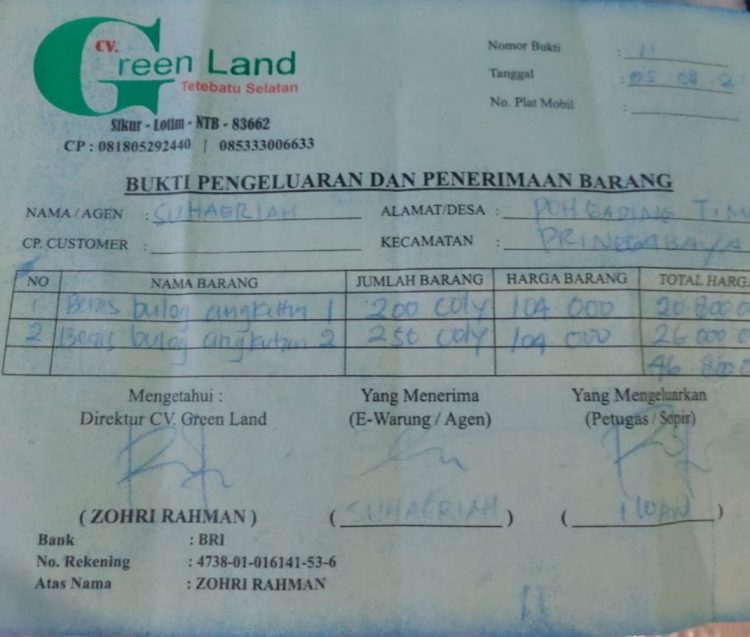 CV. Green Land
Tetebatu Selatan
Sikur - Lotim - NTB - 83662
CP : 081805292440 | 085333006633
Nomor Bukti : 11
Tanggal : 05 08 2
No. Plat Mobil :
BUKTI PENGELUARAN DAN PENERIMAAN BARANG
NAMA / AGEN : SUHAERIAH ALAMAT/DESA : POHGADING TIM
CP. CUSTOMER : KECAMATAN : PRINGGABAYA
NO NAMA BARANG JUMLAH BARANG HARGA BARANG TOTAL HARG
1 Beras bulog 1 200 coly 104 000 20 800 0
2 Beras bulog angkutan 2 250 coly 104 000 26 000 0
46 800 0
Mengetahui : Yang Menerima Yang Mengeluarkan
Direktur CV. Green Land (E-Warung / Agen) (Petugas / Sopir)
( ZOHRI RAHMAN ) ( SUHAERIAH ) ( )
Bank : BRI
No. Rekening : 4738-01-016141-53-6
Atas Nama : ZOHRI RAHMAN
11